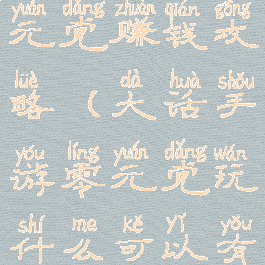 yuán dǎng zhuàn qián gōng
元党赚钱攻
lüè dà huà shǒu
略（大话手
yóu líng yuán dǎng wán
游零元党玩
shí me kě yǐ yǒu
什么可以有